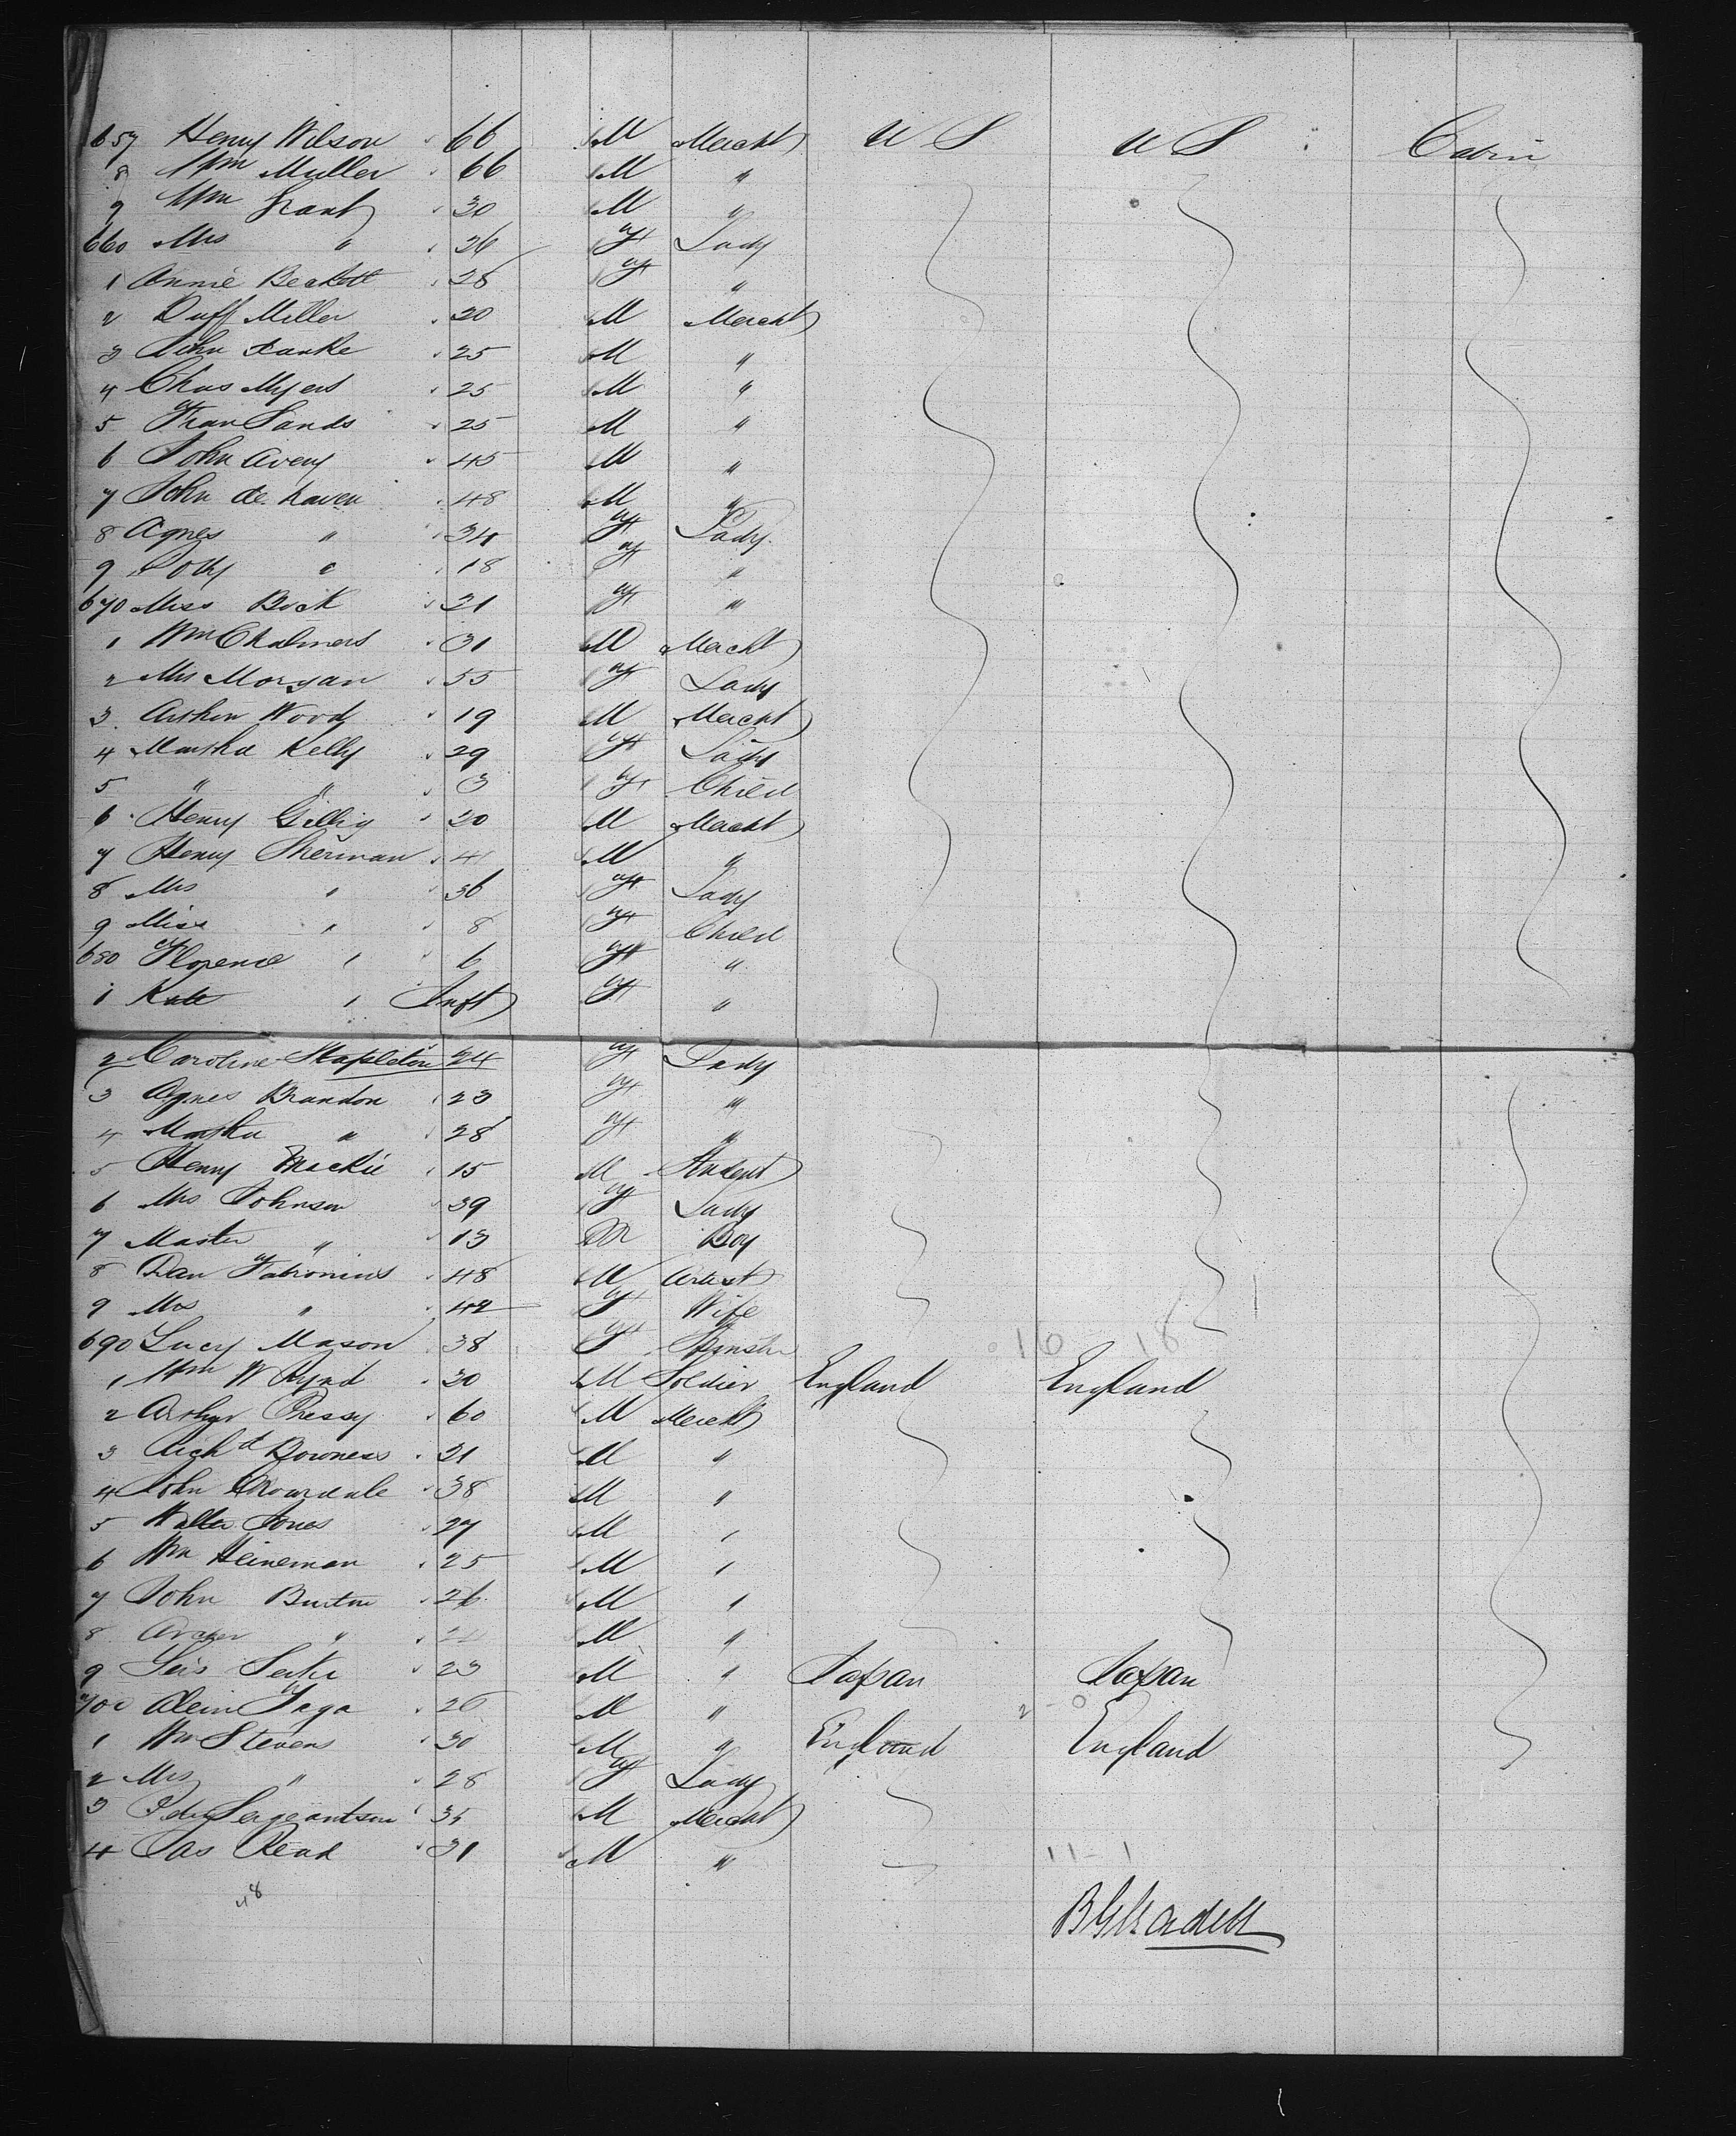 657 Henry Wilson 66 M Mercht U S U S Cabin
8 Wm Muller 66 M "
9 Wm Grant 30 M "
660 Mrs " 26 F Lady
1 Annie Beckett 28 F "
2 Duff Miller 20 M Mercht
3 John 25 M "
4 Chas Myers 25 M "
5 Fran Sands 25 M "
6 John Avery 45 M "
7 John de haven 48 M "
8 Agnes " 34 F Lady
9 " 18 F "
670 Miss Bock 21 F "
1 Wm Chalmers 31 M Mercht
2 Mrs Morgan 55 F Lady
3 Arthur Wood 19 M Mercht
4 Martha Kelly 29 F Lady
5 " " 3 F Child
6 Henry Gillig 20 M Mercht
7 Henry Sherman 41 M "
8 Mrs " 36 F Lady
9 Miss " 8 F Child
680 Florence " 6 F "
1 Kate " Inft F "
2 Caroline Stapleton 24 F Lady
3 Agnes Brandon 23 F "
4 Martha " 28 F "
5 Henry Mackie 15 M Student
6 Mrs Johnson 39 F Lady
7 Master " 13 M Boy
8 Dan 48 M Artist
9 Mrs " 42 F Wife
690 Lucy Mason 38 F Spinster 10 18
1 Wm W Kynd 30 M Soldier England England
2 Arthur Pressy 60 M Mercht
3 Richd Downess 21 M "
4 John 38 M "
5 Walter Jones 27 M "
6 Wm Heineman 25 M "
7 John Burton 26 M "
8 Archer " 24 M "
9 23 M " Japan Japan
700 26 M "
1 Wm Stevens 30 M " England England
2 Mrs " 28 F Lady
3 Peter Sergeantson 35 M Mercht
4 Jas Read 31 M " 11 - 1
48